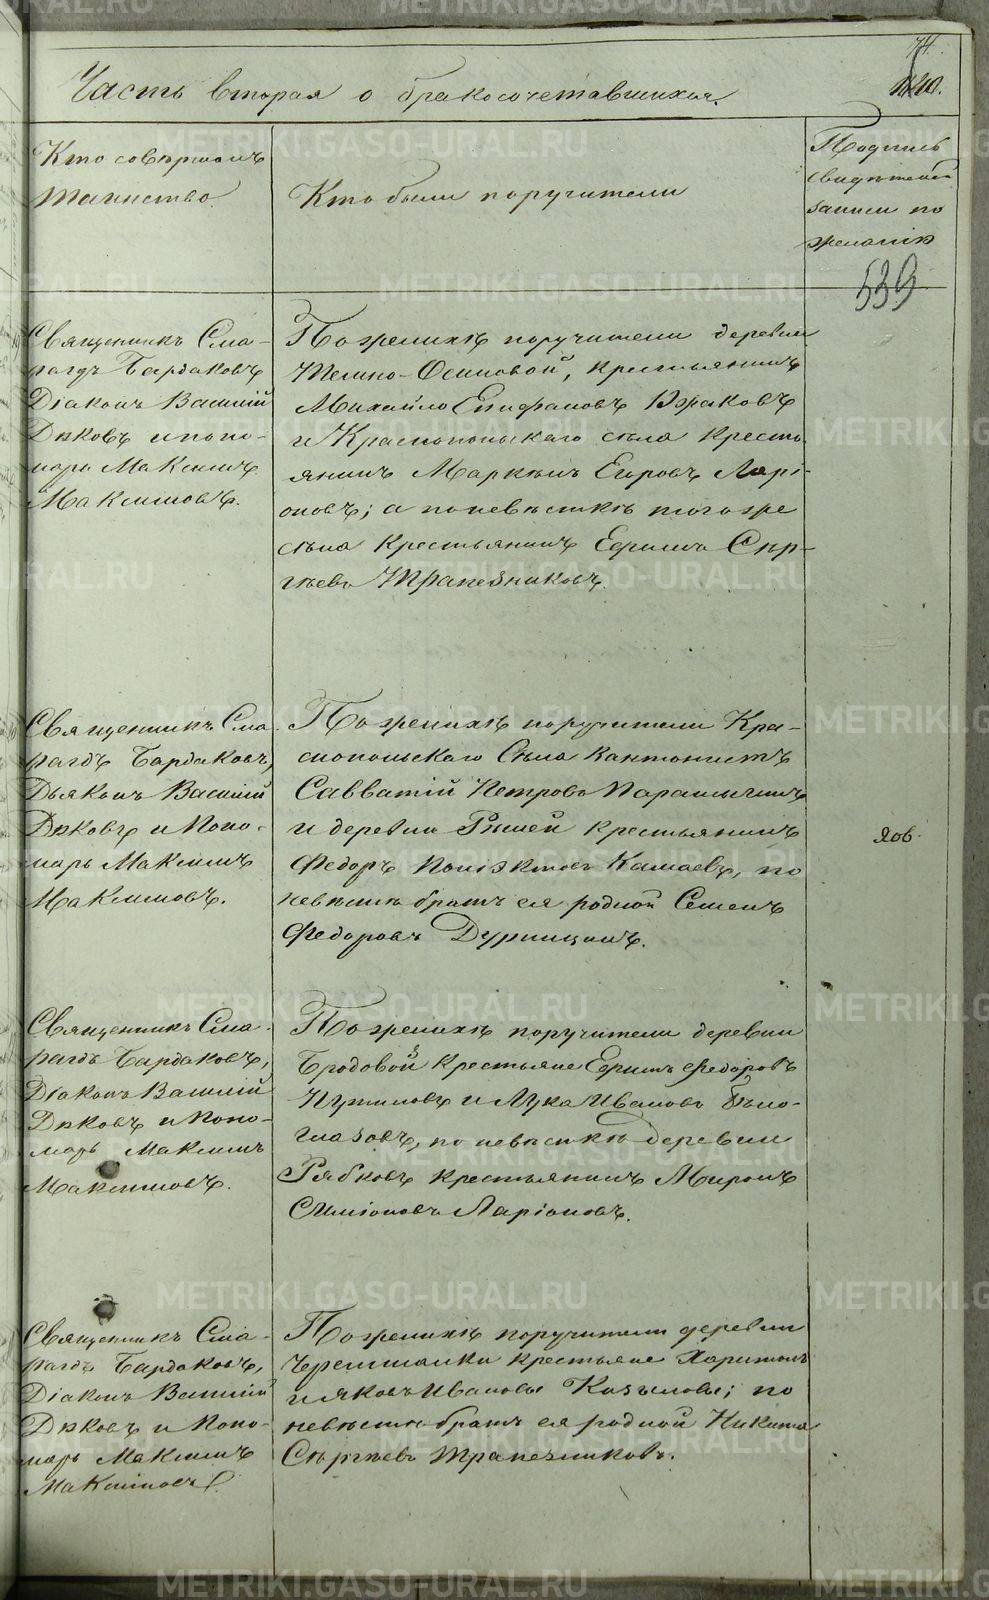 METRIKI.GASO-URAL.RU
74.
Часть вторая о бракосочетавшихся.
Кто совершалъ
таинство.
Кто были поручители
Подпись
свидѣтелей
записи по
желанію
539
Священникъ Сма-
рагдъ Бардаковъ
Діаконъ Василій
Дьковъ и поно-
марь Максимъ
Максимовъ.
По женихѣ поручители деревни
Темно-Осиновой, крестьянинъ
Михайло Епифановъ
и Краснопольскаго села кресть-
янинъ Маркелъ Ларі-
оновъ; а по невѣсткѣ тогоже
села крестьянинъ Ефимъ Сер-
гѣевъ Трапезниковъ.
Священникъ Сма-
рагдъ Бардаковъ,
Дьяконъ Василій
Дьковъ и Поно-
марь Максимъ
Максимовъ.
По женихѣ поручители Кра-
снопольскаго Села Кантонистъ
Савватій Петровъ
и деревни крестьянинъ
Федоръ Камаевъ, по
невѣстѣ братъ ея родной Семенъ
Федоровъ Дурницынъ.
Яов.
Священникъ Сма-
рагдъ Бардаковъ,
Діаконъ Василій
Дьковъ и Поно-
марь Максимъ
Максимовъ.
По женихѣ поручители деревни
Бродовой крестьяне Ефимъ Федоровъ
и Лука Ивановъ Бѣло-
глазовъ, по невѣсткѣ деревни
Рябковъ крестьянинъ Миронъ
Симіоновъ Ларіоновъ.
Священникъ Сма-
рагдъ Бардаковъ,
Діаконъ Василій
Дьковъ и Поно-
марь Максимъ
Максимовъ.
По женихѣ поручители деревни
Черемшанки крестьяне Харитонъ
и Яковъ Ивановы Козыловы; по
невѣстѣ братъ ея родной Никита
Сергѣевъ Трапезниковъ.